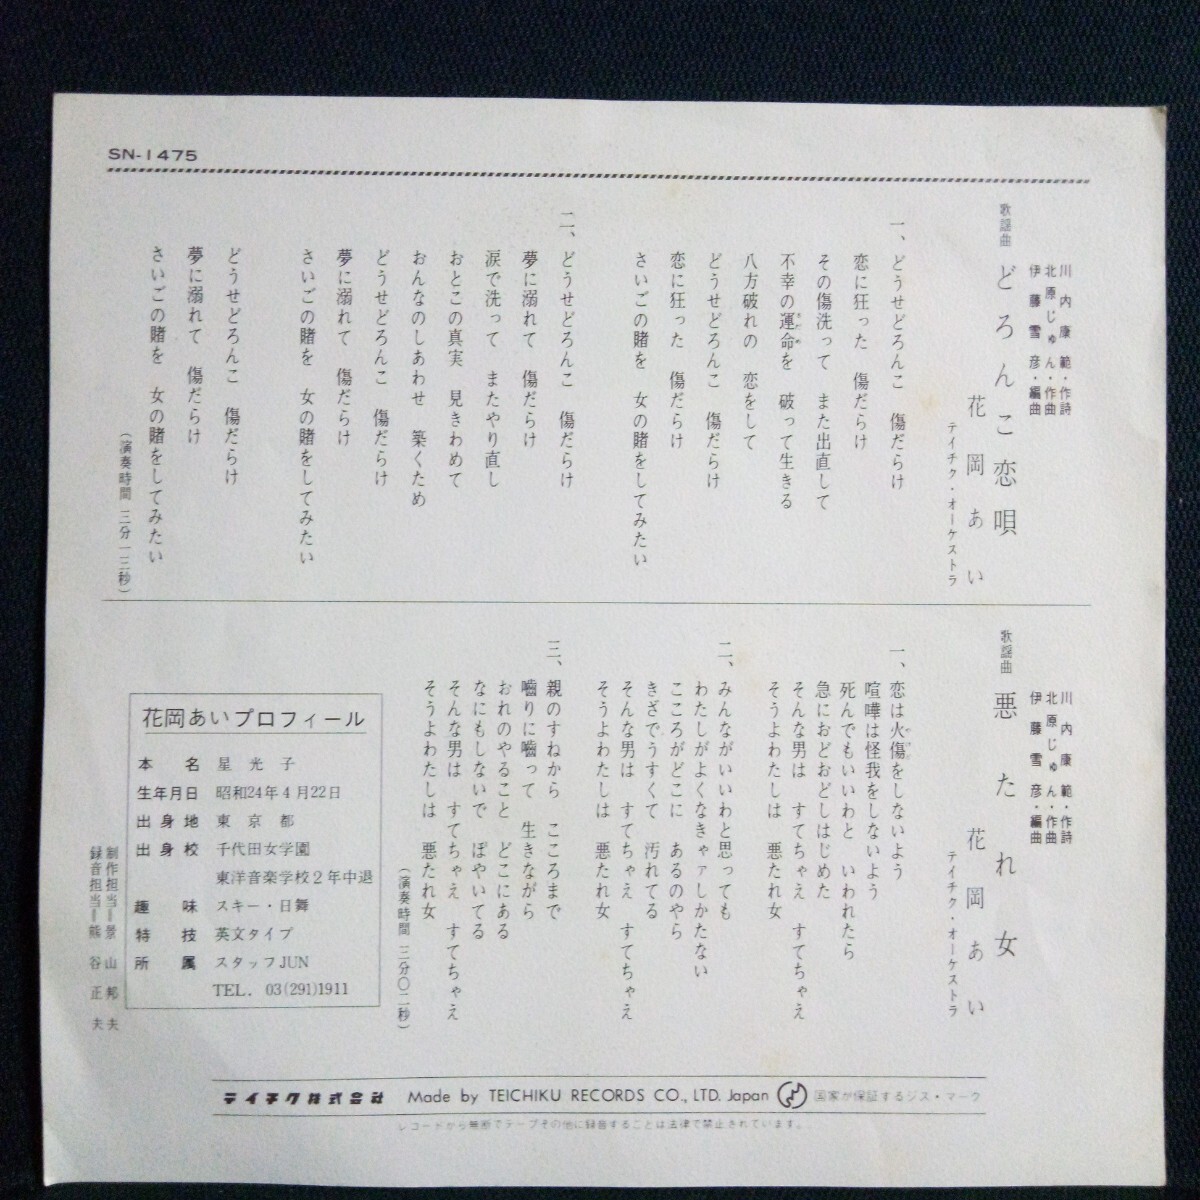 SN-1475
歌謡曲
どろんこ恋唄
川内康範・作詩
北原じゅん・作曲
伊藤雪彦・編曲
花岡あい
テイチク・オーケストラ
一、どうせどろんこ 傷だらけ
恋に狂った 傷だらけ
その傷洗って また出直して
不幸の運命を 破って生きる
八方破れの 恋をして
どうせどろんこ 傷だらけ
恋に狂った 傷だらけ
さいごの賭を 女の賭をしてみたい
二、どうせどろんこ 傷だらけ
夢に溺れて 傷だらけ
涙で洗って またやり直し
おとこの真実 見きわめて
おんなのしあわせ 築くため
どうせどろんこ 傷だらけ
夢に溺れて 傷だらけ
さいごの賭を 女の賭をしてみたい
どうせどろんこ 傷だらけ
夢に溺れて 傷だらけ
さいごの賭を 女の賭をしてみたい
(演奏時間 三分一三秒)
歌謡曲
悪たれ女
川内康範・作詩
北原じゅん・作曲
伊藤雪彦・編曲
花岡あい
テイチク・オーケストラ
一、恋は火傷をしないよう
喧嘩は怪我をしないよう
死んでもいいわと いわれたら
急におどおどしはじめた
そんな男は すてちゃえ すてちゃえ
そうよわたしは 悪たれ女
二、みんながいいわと思っても
わたしがよくなきゃァしかたない
こころがどこに あるのやら
きざでうすくて 汚れてる
そんな男は すてちゃえ すてちゃえ
そうよわたしは 悪たれ女
三、親のすねから こころまで
嚙りに嚙って 生きながら
おれのやること どこにある
なにもしないで ぼやいてる
そんな男は すてちゃえ すてちゃえ
そうよわたしは 悪たれ女
(演奏時間 三分〇二秒)
花岡あいプロフィール
本名 星光子
生年月日 昭和24年4月22日
出身地 東京都
出身校 千代田女学園
東洋音楽学校2年中退
趣味 スキー・日舞
特技 英文タイプ
所属 スタッフJUN
TEL. 03(291)1911
制作担当=景山邦夫
録音担当=熊谷正夫
テイチク株式会社 Made by TEICHIKU RECORDS CO., LTD. Japan 国家が保証するジス・マーク
レコードから無断でテープその他に録音することは法律で禁止されています。